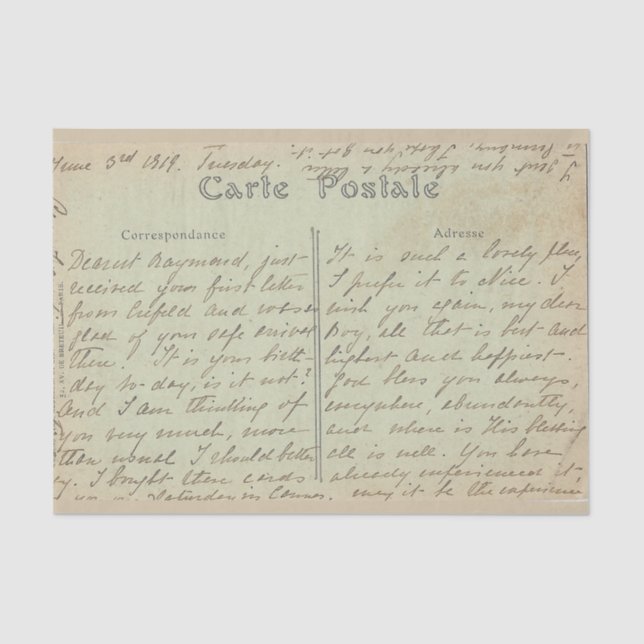 June 3rd 1919. Tuesday.
I sent you already a letter
I hope you got it.
Carte Postale
Correspondance
Adresse
Dearest Raymond, just
received your first letter
from Crefeld and was so
glad of your safe arrival
there. It is your birth-
day to-day, is it not?
And I am thinking of
you very much, more
than usual I should better
I bought these cards
Saturday in Cannes.
It is such a lovely place,
I prefer it to Nice. I
wish you again, my dear
Boy, all that is best and
highest and happiest.
God bless you always,
everywhere, abundantly,
and where is His blessing
all is well. You have
already experienced it,
may it be the experience
21, AV. DE BRETEUIL - PARIS